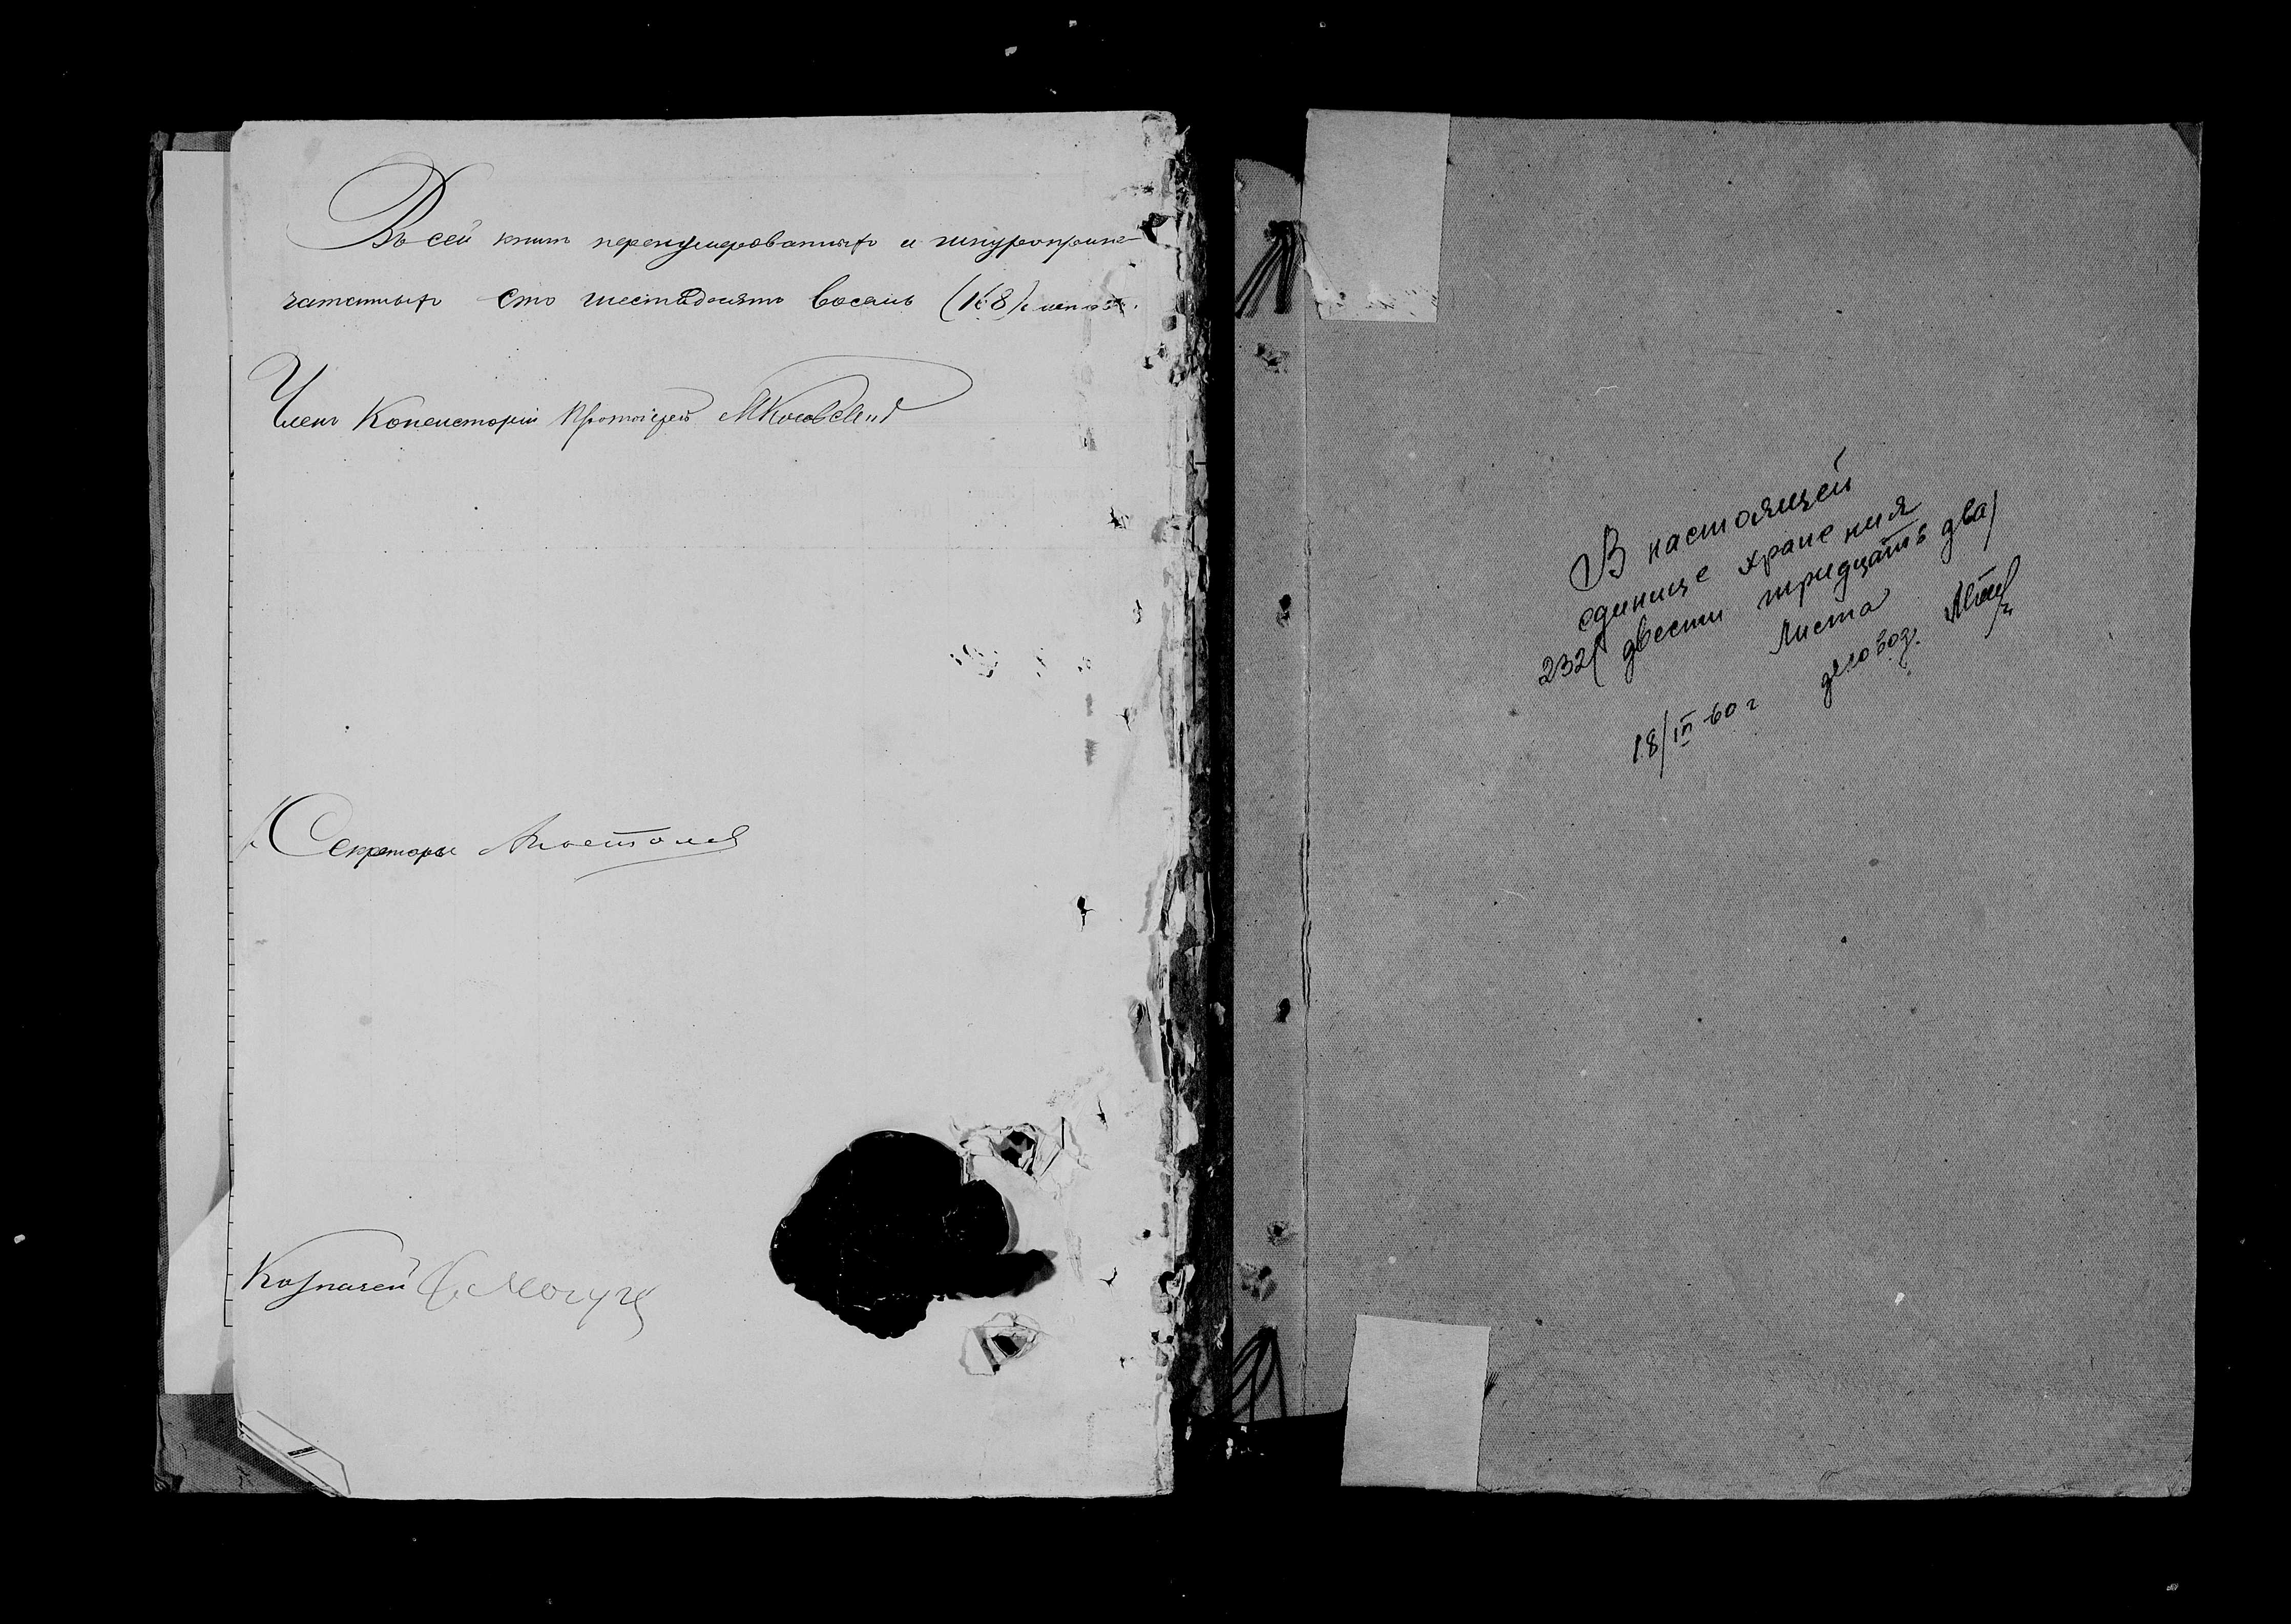 Въ сей книгѣ перенумерованныхъ и шнуроприпе-
чатанныхъ сто шестьдесятъ восемь (168) листовъ.
Членъ Консисторіи Протоіерей
Секретарь
Казначей
В настоящей
единице хранения
232 (двести тридцать два)
листа
деловод.
18/III-60 г